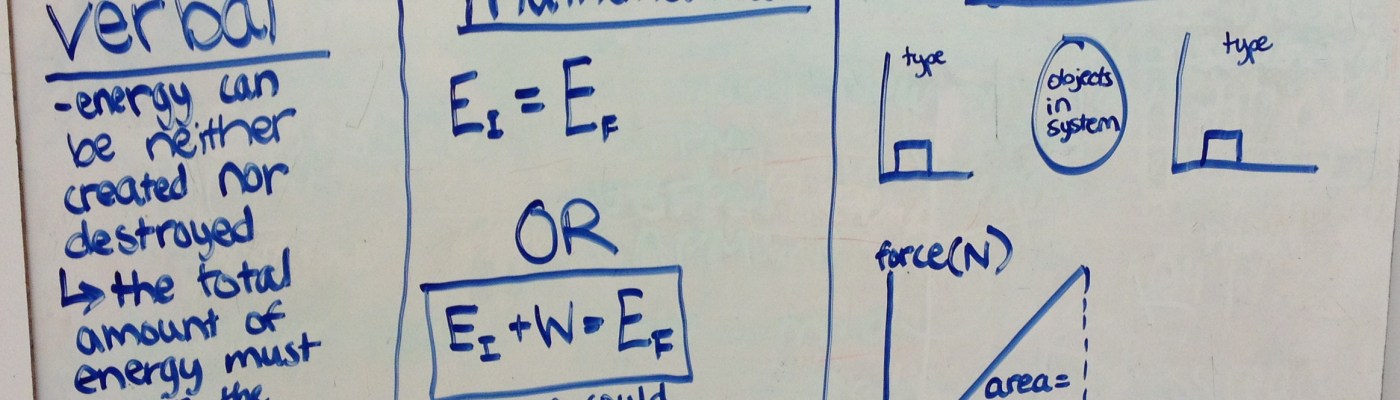 verbal
-energy can
be neither
created nor
destroyed
↳ the total
amount of
energy must
the
E_I = E_F
OR
E_I + W = E_F
could
type
objects
in
system
type
force(N)
area=